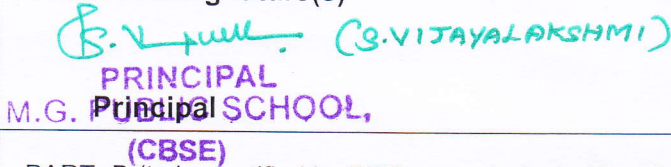 (S. VIJAYALAKSHMI)
PRINCIPAL
M.G. PUBLIC SCHOOL,
Principal
(CBSE)